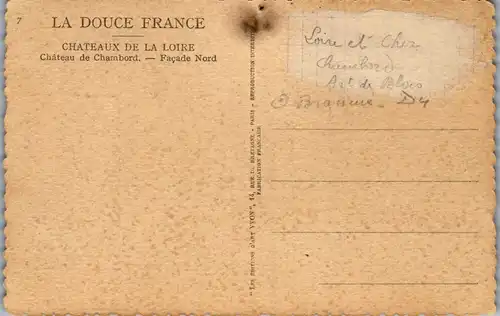 7
LA DOUCE FRANCE
CHATEAUX DE LA LOIRE
Château de Chambord. — Façade Nord
"LES EDITIONS D'ART YVON", 15, RUE MARTEL - PARIS - REPRODUCTION INTERDITE
FABRICATION FRANÇAISE
Loire et Cher
Chambord
Art de Blois
D4